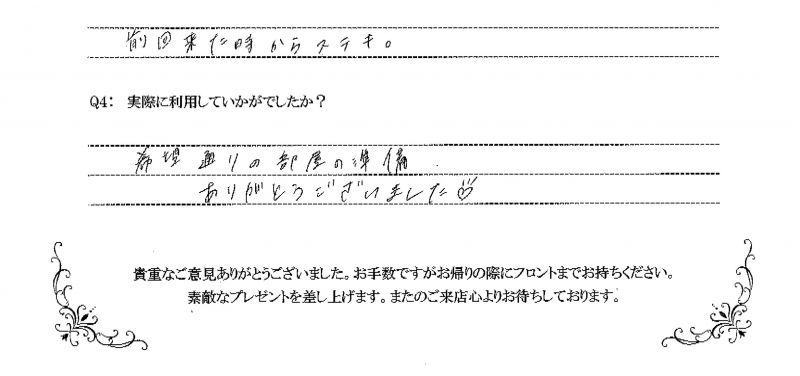 前回来た時からステキ。
Q4: 実際に利用していかがでしたか？
希望通りの部屋の準備.
ありがとうございました
貴重なご意見ありがとうございました。お手数ですがお帰りの際にフロントまでお持ちください。
素敵なプレゼントを差し上げます。またのご来店心よりお待ちしております。